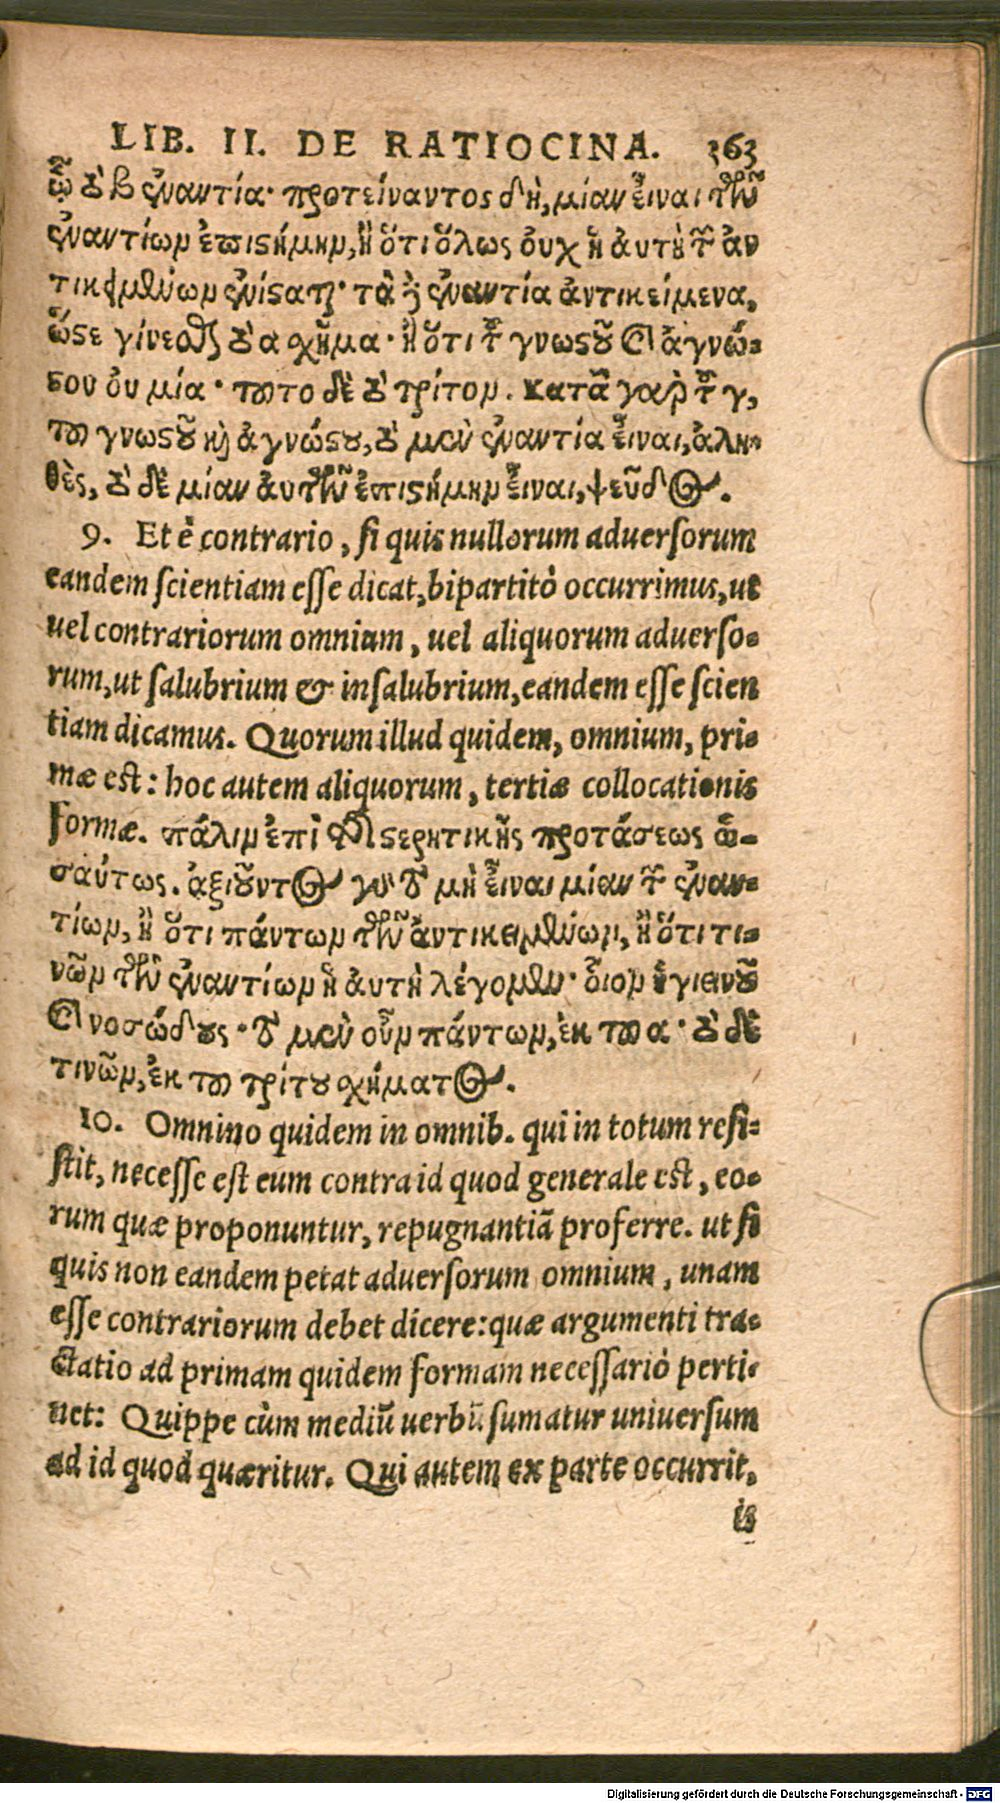 LIB. II. DE RATIOCINA. 363
ᾧ τὸ β ἐναντία· προτείναντος δὴ, μίαν εἶναι τῶν
ἐναντίων ἐπιστήμην, ἢ ὅτι ὅλως οὐχ ἡ αὐτὴ τῶν ἀν
τικειμένων ἐνίσταται· τὰ δὲ ἐναντία ἀντικείμενα,
ὥστε γίνεσθαι τὸ α σχῆμα· ἢ ὅτι τοῦ γνωστοῦ καὶ ἀγνώ-
στου οὐ μία· τοῦτο δὲ τὸ τρίτον. κατὰ γὰρ τοῦ γ,
τοῦ γνωστοῦ καὶ ἀγνώστου, τὸ μὲν ἐναντία εἶναι, ἀλη-
θὲς, τὸ δὲ μίαν αὐτῶν ἐπιστήμην εἶναι, ψεῦδος.
9. Et è contrario, si quis nullorum aduersorum
eandem scientiam esse dicat, bipartitò occurrimus, ut
uel contrariorum omnium, uel aliquorum aduerso-
rum, ut salubrium & insalubrium, eandem esse scien
tiam dicamus. Quorum illud quidem, omnium, pri-
mæ est: hoc autem aliquorum, tertiæ collocationis
formæ. πάλιν ἐπὶ τῆς στερητικῆς προτάσεως ὡ-
σαύτως. ἀξιοῦντος γὰρ τὸ μὴ εἶναι μίαν τῶν ἐναν-
τίων, ἢ ὅτι πάντων τῶν ἀντικειμένων, ἢ ὅτι τι-
νῶν τῶν ἐναντίων ἡ αὐτὴ λέγομεν· οἷον ὑγιεινοῦ
καὶ νοσώδους· τὸ μὲν οὖν πάντων, ἐκ τοῦ α· τὸ δὲ
τινῶν, ἐκ τοῦ τρίτου σχήματος.
10. Omnino quidem in omnib. qui in totum resi-
stit, necesse est eum contra id quod generale est, eo-
rum quæ proponuntur, repugnantiā proferre. ut si
quis non eandem petat aduersorum omnium, unam
esse contrariorum debet dicere: quæ argumenti tra-
ctatio ad primam quidem formam necessariò perti-
net: Quippe cùm mediū uerbū sumatur uniuersum
ad id quod quæritur. Qui autem ex parte occurrit,
is
Digitalisierung gefördert durch die Deutsche Forschungsgemeinschaft - DFG